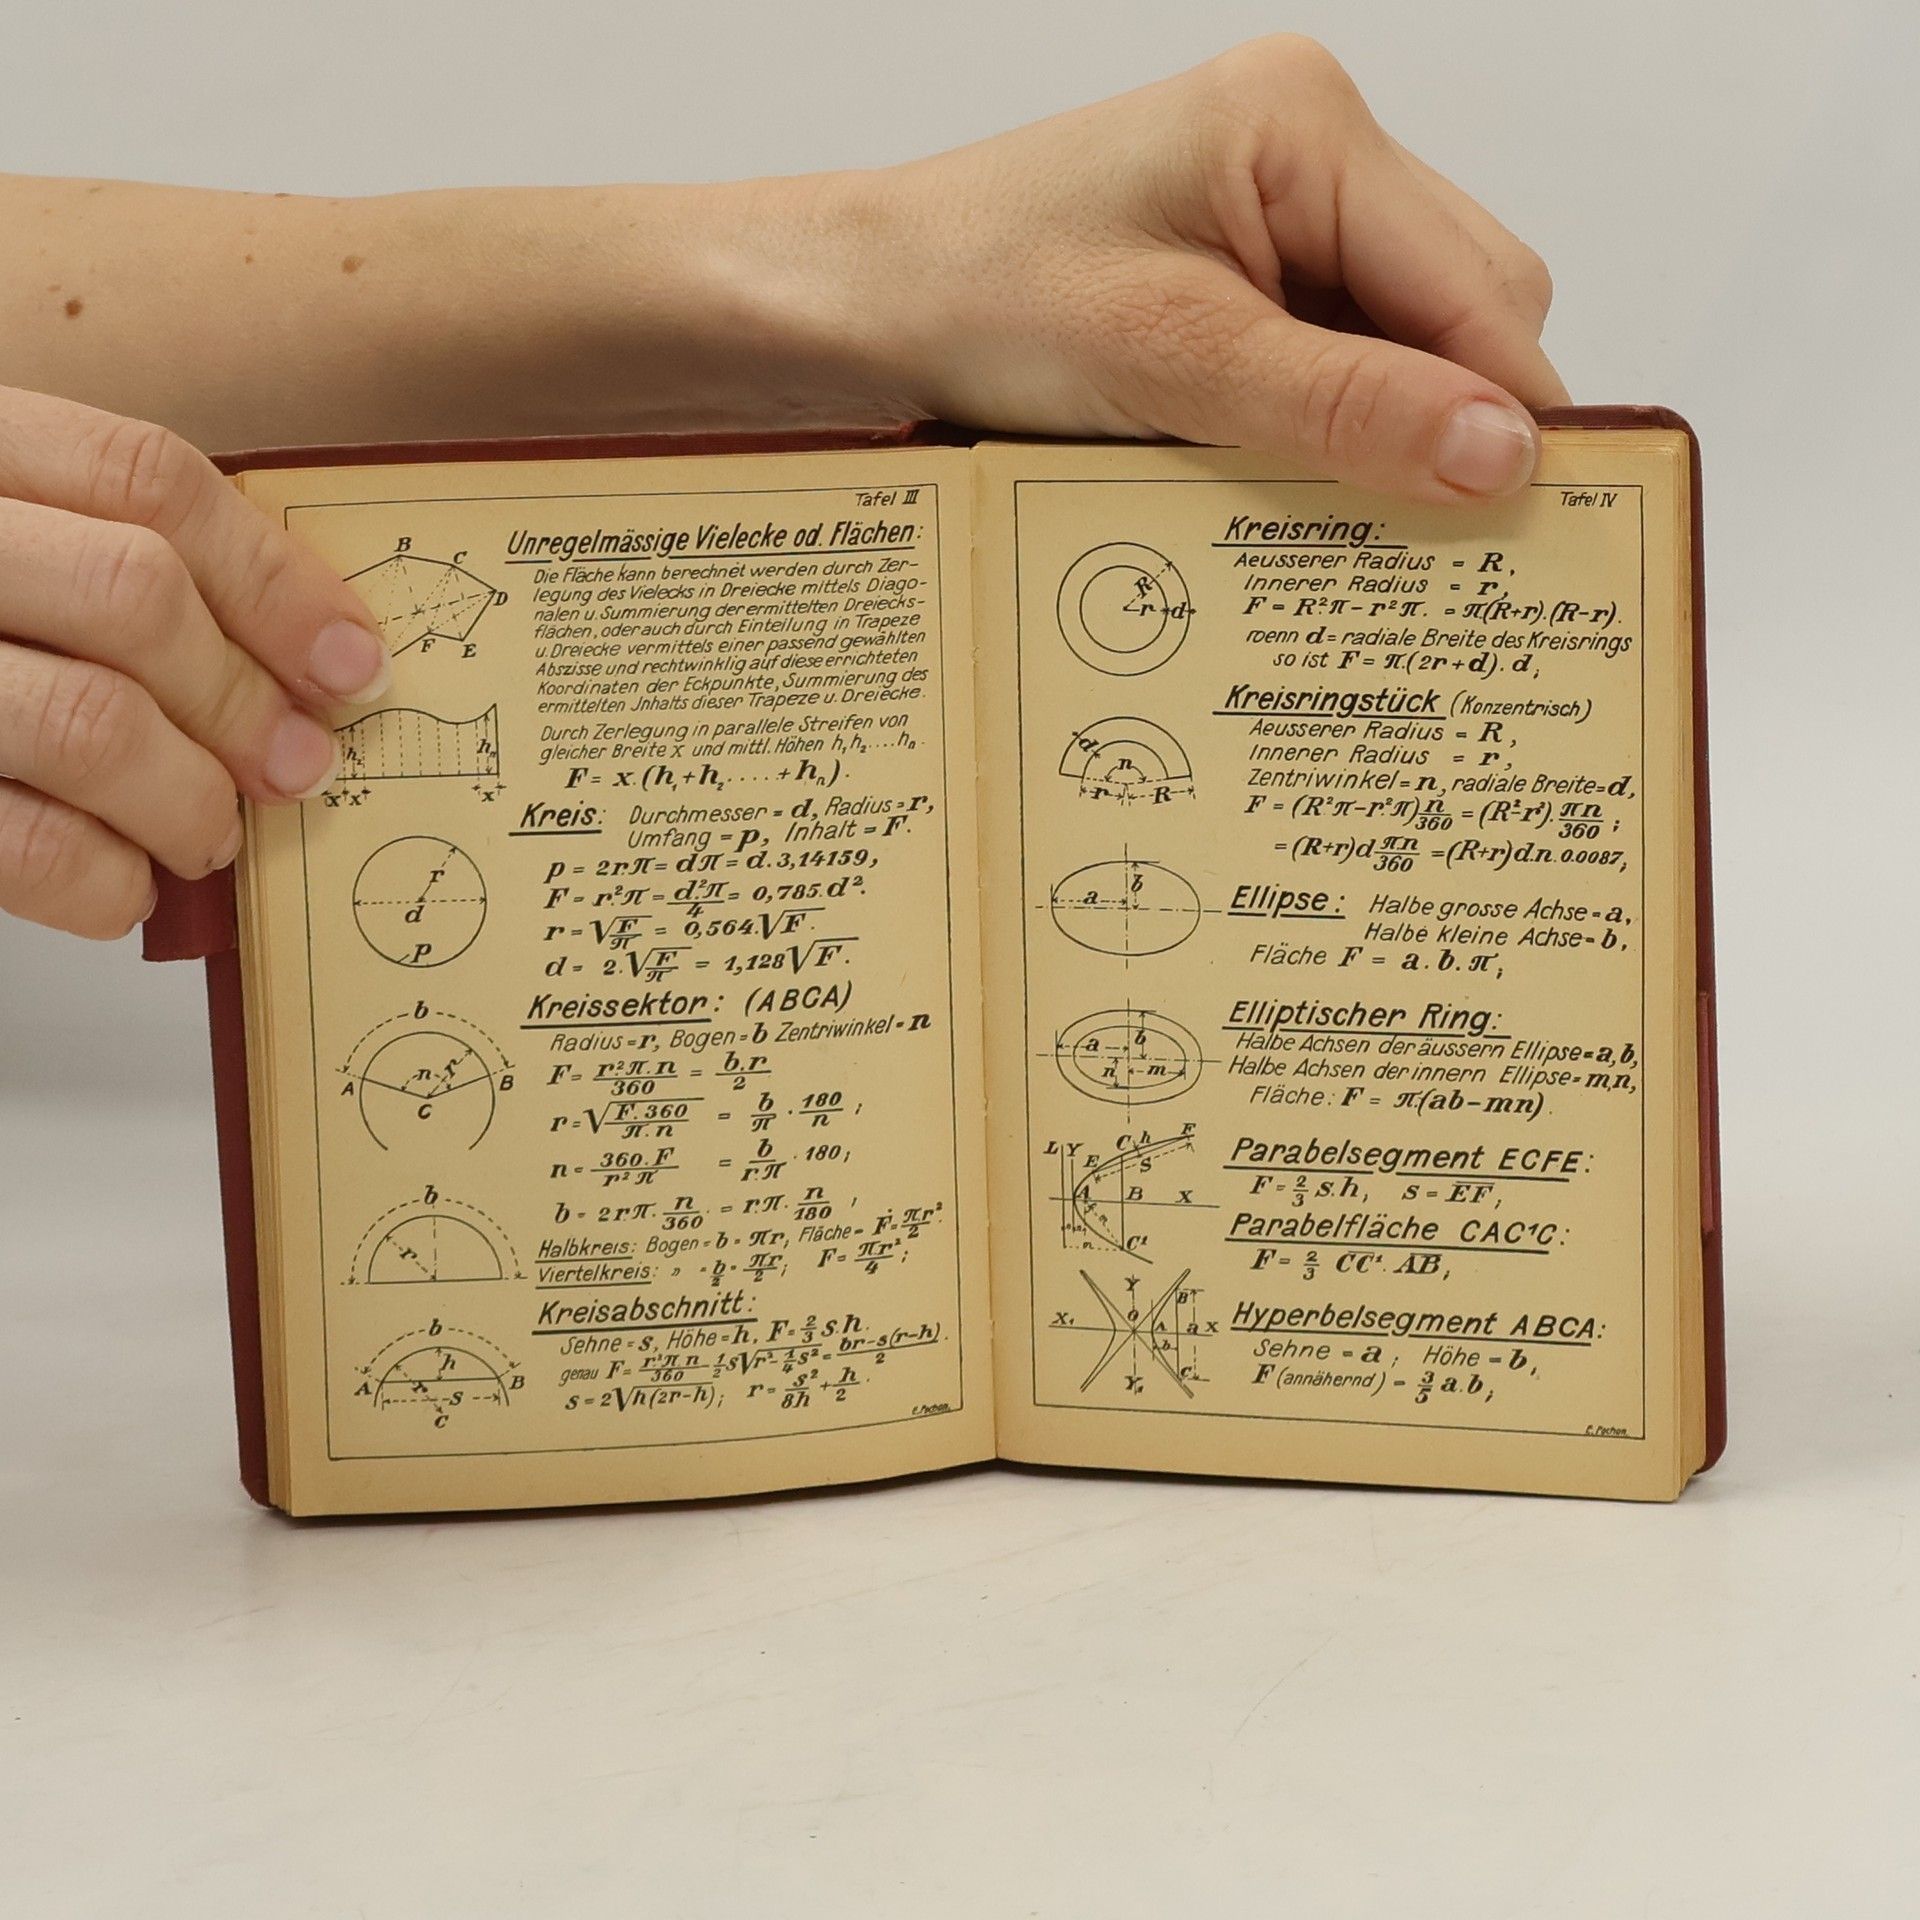 Tafel III
Unregelmässige Vielecke od. Flächen:
Die Fläche kann berechnet werden durch Zer-
legung des Vielecks in Dreiecke mittels Diago-
nalen u. Summierung der ermittelten Dreiecks-
flächen, oder auch durch Einteilung in Trapeze
u. Dreiecke vermittels einer passend gewählten
Abszisse und rechtwinklig auf diese errichteten
Koordinaten der Eckpunkte, Summierung des
ermittelten Jnhalts dieser Trapeze u. Dreiecke.
B C D E F
Durch Zerlegung in parallele Streifen von
gleicher Breite x und mittl. Höhen h₁ h₂ .... hₙ.
F = x.(h₁ + h₂ ..... + hₙ).
x x x
Kreis: Durchmesser = d, Radius = r,
Umfang = p, Inhalt = F.
p = 2rπ = dπ = d. 3,14159,
F = r².π = d².π/4 = 0,785.d².
r = √F/π = 0,564.√F.
d = 2.√F/π = 1,128√F.
r
d
p
Kreissektor: (ABCA)
Radius = r, Bogen = b Zentriwinkel = n
F = r².π.n/360 = b.r/2
r = √F.360/π.n = b/π · 180/n ;
n = 360.F/r²π = b/r.π · 180;
b = 2rπ. n/360 = r.π. n/180 ,
b
n r
A B
C
Halbkreis: Bogen = b = πr; Fläche = F = πr²/2
Viertelkreis: " = b/2 = πr/2; F = πr²/4 ;
b
r
Kreisabschnitt:
Sehne = s, Höhe = h, F = 2/3 s.h.
genau F = r²π.n/360 - 1/2 s√r² - 1/4 s² = br-s(r-h)/2.
s = 2√h(2r-h); r = s²/8h + h/2.
b
h
A r B
s
C
E. Pochon.
Tafel IV
Kreisring:
Aeusserer Radius = R,
Innerer Radius = r,
F = R².π - r²π. = π(R+r).(R-r).
wenn d = radiale Breite des Kreisrings
so ist F = π.(2r+d). d;
R
r d
Kreisringstück (Konzentrisch)
Aeusserer Radius = R,
Innerer Radius = r,
Zentriwinkel = n, radiale Breite = d,
F = (R².π-r².π) n/360 = (R²-r²). πn/360 ;
= (R+r)d πn/360 = (R+r)d.n. 0.0087;
d
n
r R
Ellipse: Halbe grosse Achse = a,
Halbe kleine Achse = b,
Fläche F = a. b. π;
a b
Elliptischer Ring:
Halbe Achsen der äussern Ellipse = a,b,
Halbe Achsen der innern Ellipse = m,n,
Fläche: F = π.(ab-mn).
a b
n m
Parabelsegment ECFE:
F = 2/3 s.h, s = EF;
Parabelfläche CAC¹C:
F = 2/3 CC¹. AB;
L Y C h F
E S
A B X
C¹
Hyperbelsegment ABCA:
Sehne = a; Höhe = b,
F (annähernd) = 3/5 a.b;
Y B
X₁ O A a X
b
Y₁ C
E. Pochon.